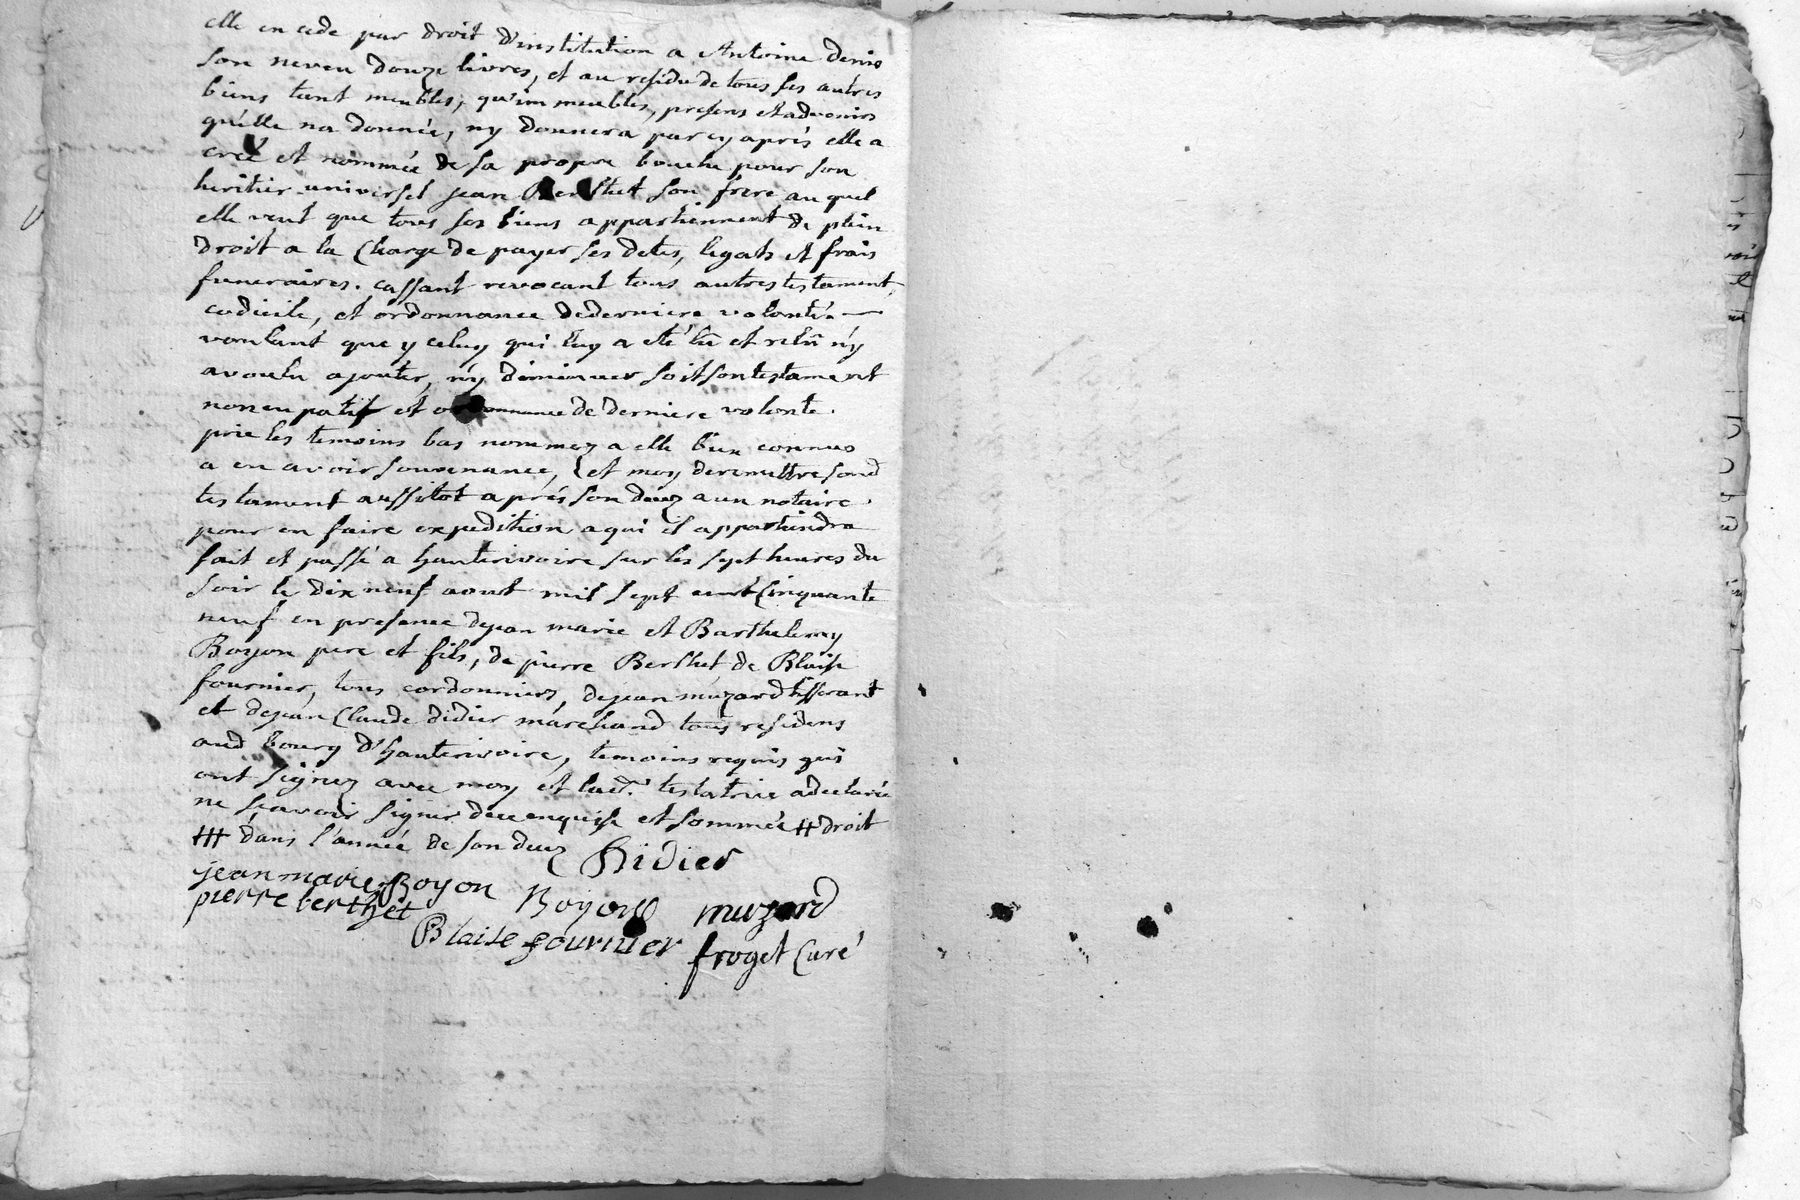 elle en cede par droit d'institution a Antoine denis
son neveu douze livres, et au residu de tous ses autres
biens tant meubles, qu'immeubles, presens et advenirs
qu'elle na donnée, ny donnera par cy après elle a
creé et nommée de sa propre bouche pour son
heritier universel jean Berthet son frere au quel
elle veut que tous ses biens appartiennent de plein
droit a la Charge de payer ses detes, legats et frais
funeraires. cassant revocant tous autres testament,
codicile, et ordonnance de derniere volonté
voulant que y celuy qui luy a eté lû et relû n'y
a voulu ajouter, n'y diminuer soit son testament
noncupatif et ordonnance de derniere volonte.
prie les temoins bas nommez a elle bien connus
a en avoir souvenance, et moy de remettre sond
testament aussitot après son decez a un notaire.
pour en faire expedition a qui il appartiendra
fait et passé a hauterivoire sur les sept heures du
soir le dix neuf aout mil sept cent Cinquante
neuf en presence de jean marie et Barthelemy
Boyon pere et fils, de pierre Berthet de Blaise
fournier, tous cordonniers, de jean muzard tisserant
et de jean Claude didier marchand tous residens
aud bourg d'hauterivoire, temoins requis qui
ont signez avec moy et lad. testatrice a declarée
ne sçavoir signer de ce enquise et sommée # droit
## dans l'année de son decez
Didier
jean marie Boyon
pierre berthet
Boyon
muzard
Blaise fournier
froget Curé